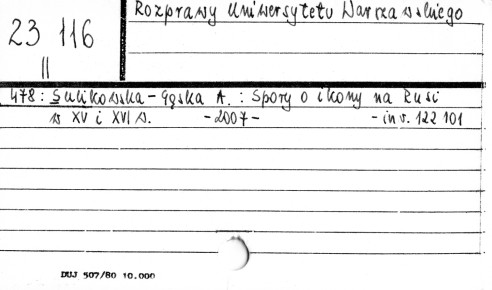 Rozprawy Uniwersytetu Warszawskiego
23 116
II
478: Sulikowska-Gąska A.: Spory o ikony na Rusi
w XV i XVI w. -2007- -inv. 122 101
DUJ 507/80 10.000